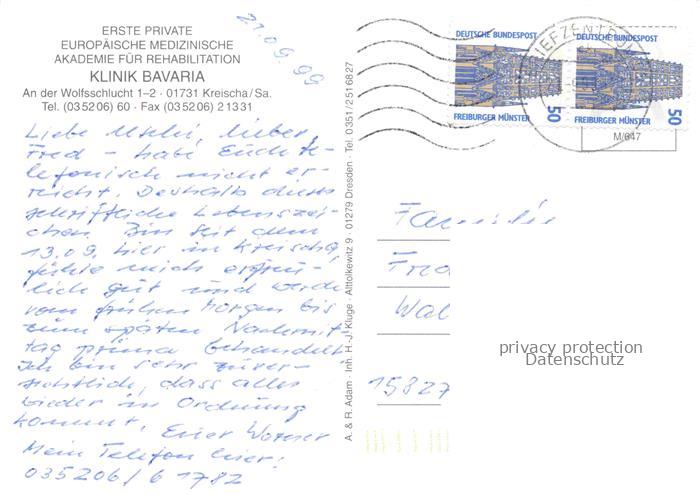 ERSTE PRIVATE
EUROPÄISCHE MEDIZINISCHE
AKADEMIE FÜR REHABILITATION
KLINIK BAVARIA
An der Wolfsschlucht 1–2 · 01731 Kreischa/Sa.
Tel. (035206) 60 · Fax (035206) 21331
21.09.99
Liebe lieber
Fred – habe Euch te-
lefonisch nicht er-
reicht. Deshalb diese
schriftliche Lebenszei-
chen. Bin seit dem
13.09. hier in Kreischa,
fühle mich erfreu-
lich gut und werde
vom frühen Morgen bis
zum späten Nachmit
tag prima behandelt
Ich bin sehr zuver-
sichtlich, dass alles
wieder in Ordnung
kommt. Euer Werner
Mein Telefon hier:
035206/6 1782
A. & R. Adam · Inh. H.-J. Kluge · Alttolkewitz 9 · 01279 Dresden · Tel. 0351/2516827
DEUTSCHE BUNDESPOST
50
FREIBURGER MÜNSTER
DEUTSCHE BUNDESPOST
50
FREIBURGER MÜNSTER
BRIEFZENTRUM
M/647
Familie
Fred
Wal
15827
privacy protection
Datenschutz